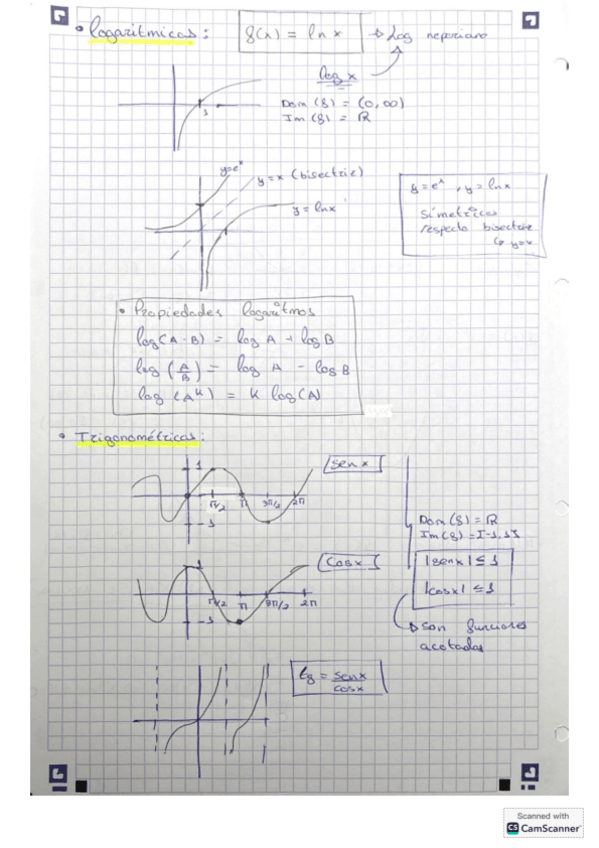 • Logarítmicas: f(x) = ln x → Log neperiano
log x
1
Dom(f) = (0, ∞)
Im(f) = ℝ
y=eˣ
y=x (bisectriz)
y=ln x
y=eˣ, y=ln x
simétricas
respecto bisectriz
↳ y=x
• Propiedades logaritmos
log(A·B) = log A + log B
log(A/B) = log A - log B
log(Aᵏ) = K log(A)
• Trigonométricas:
sen x
1
π/2 π 3π/2 2π
-1
Dom(f) = ℝ
Im(f) = [-1, 1]
cos x
|sen x| ≤ 1
1
|cos x| ≤ 1
π/2 π 3π/2 2π
-1
→ son funciones
acotadas
tg = senx/cosx
Scanned with
CS CamScanner